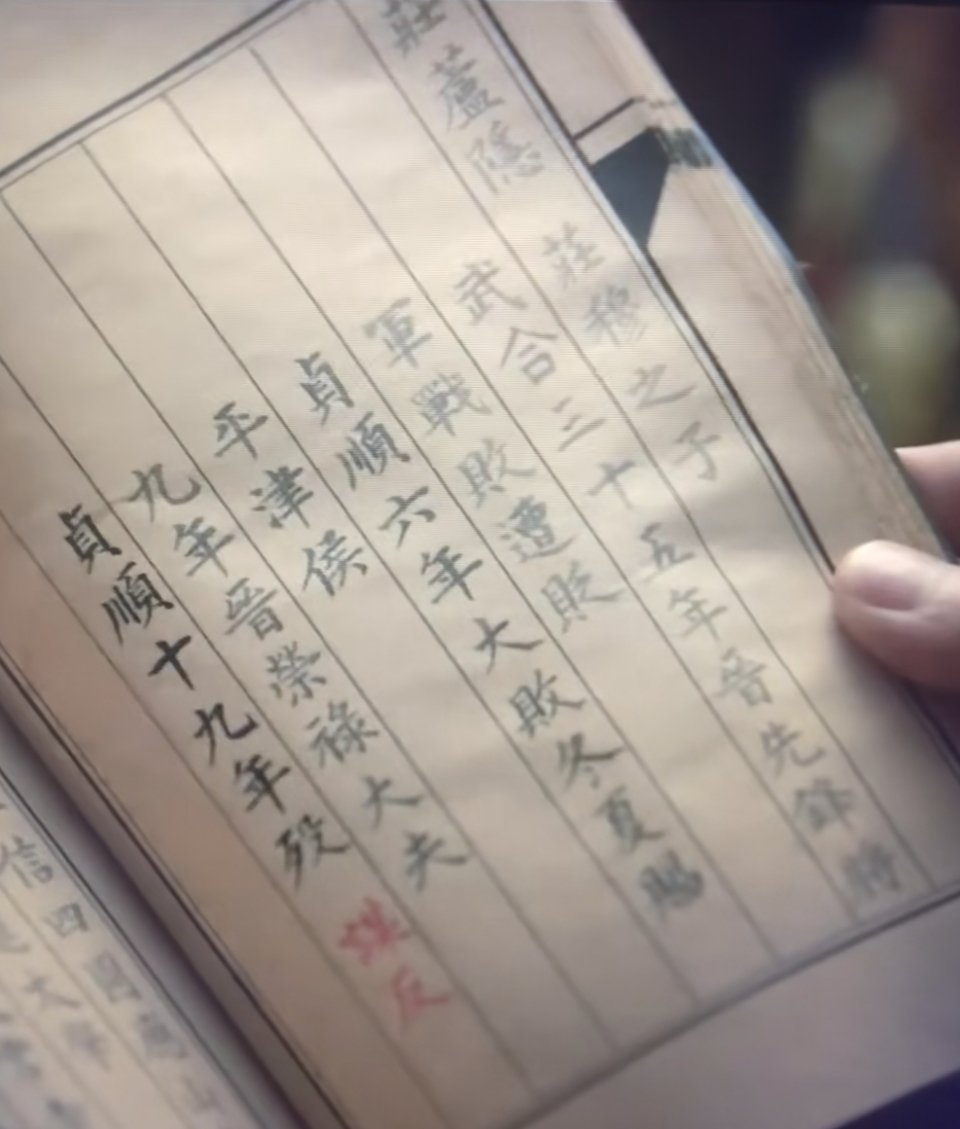 莊蘆隱
莊穆之子
武合三十五年晉先鋒將
軍戰敗遭貶
貞順六年大敗冬夏賜
平津侯
九年晉榮祿大夫
貞順十九年歿 謀反
信四國